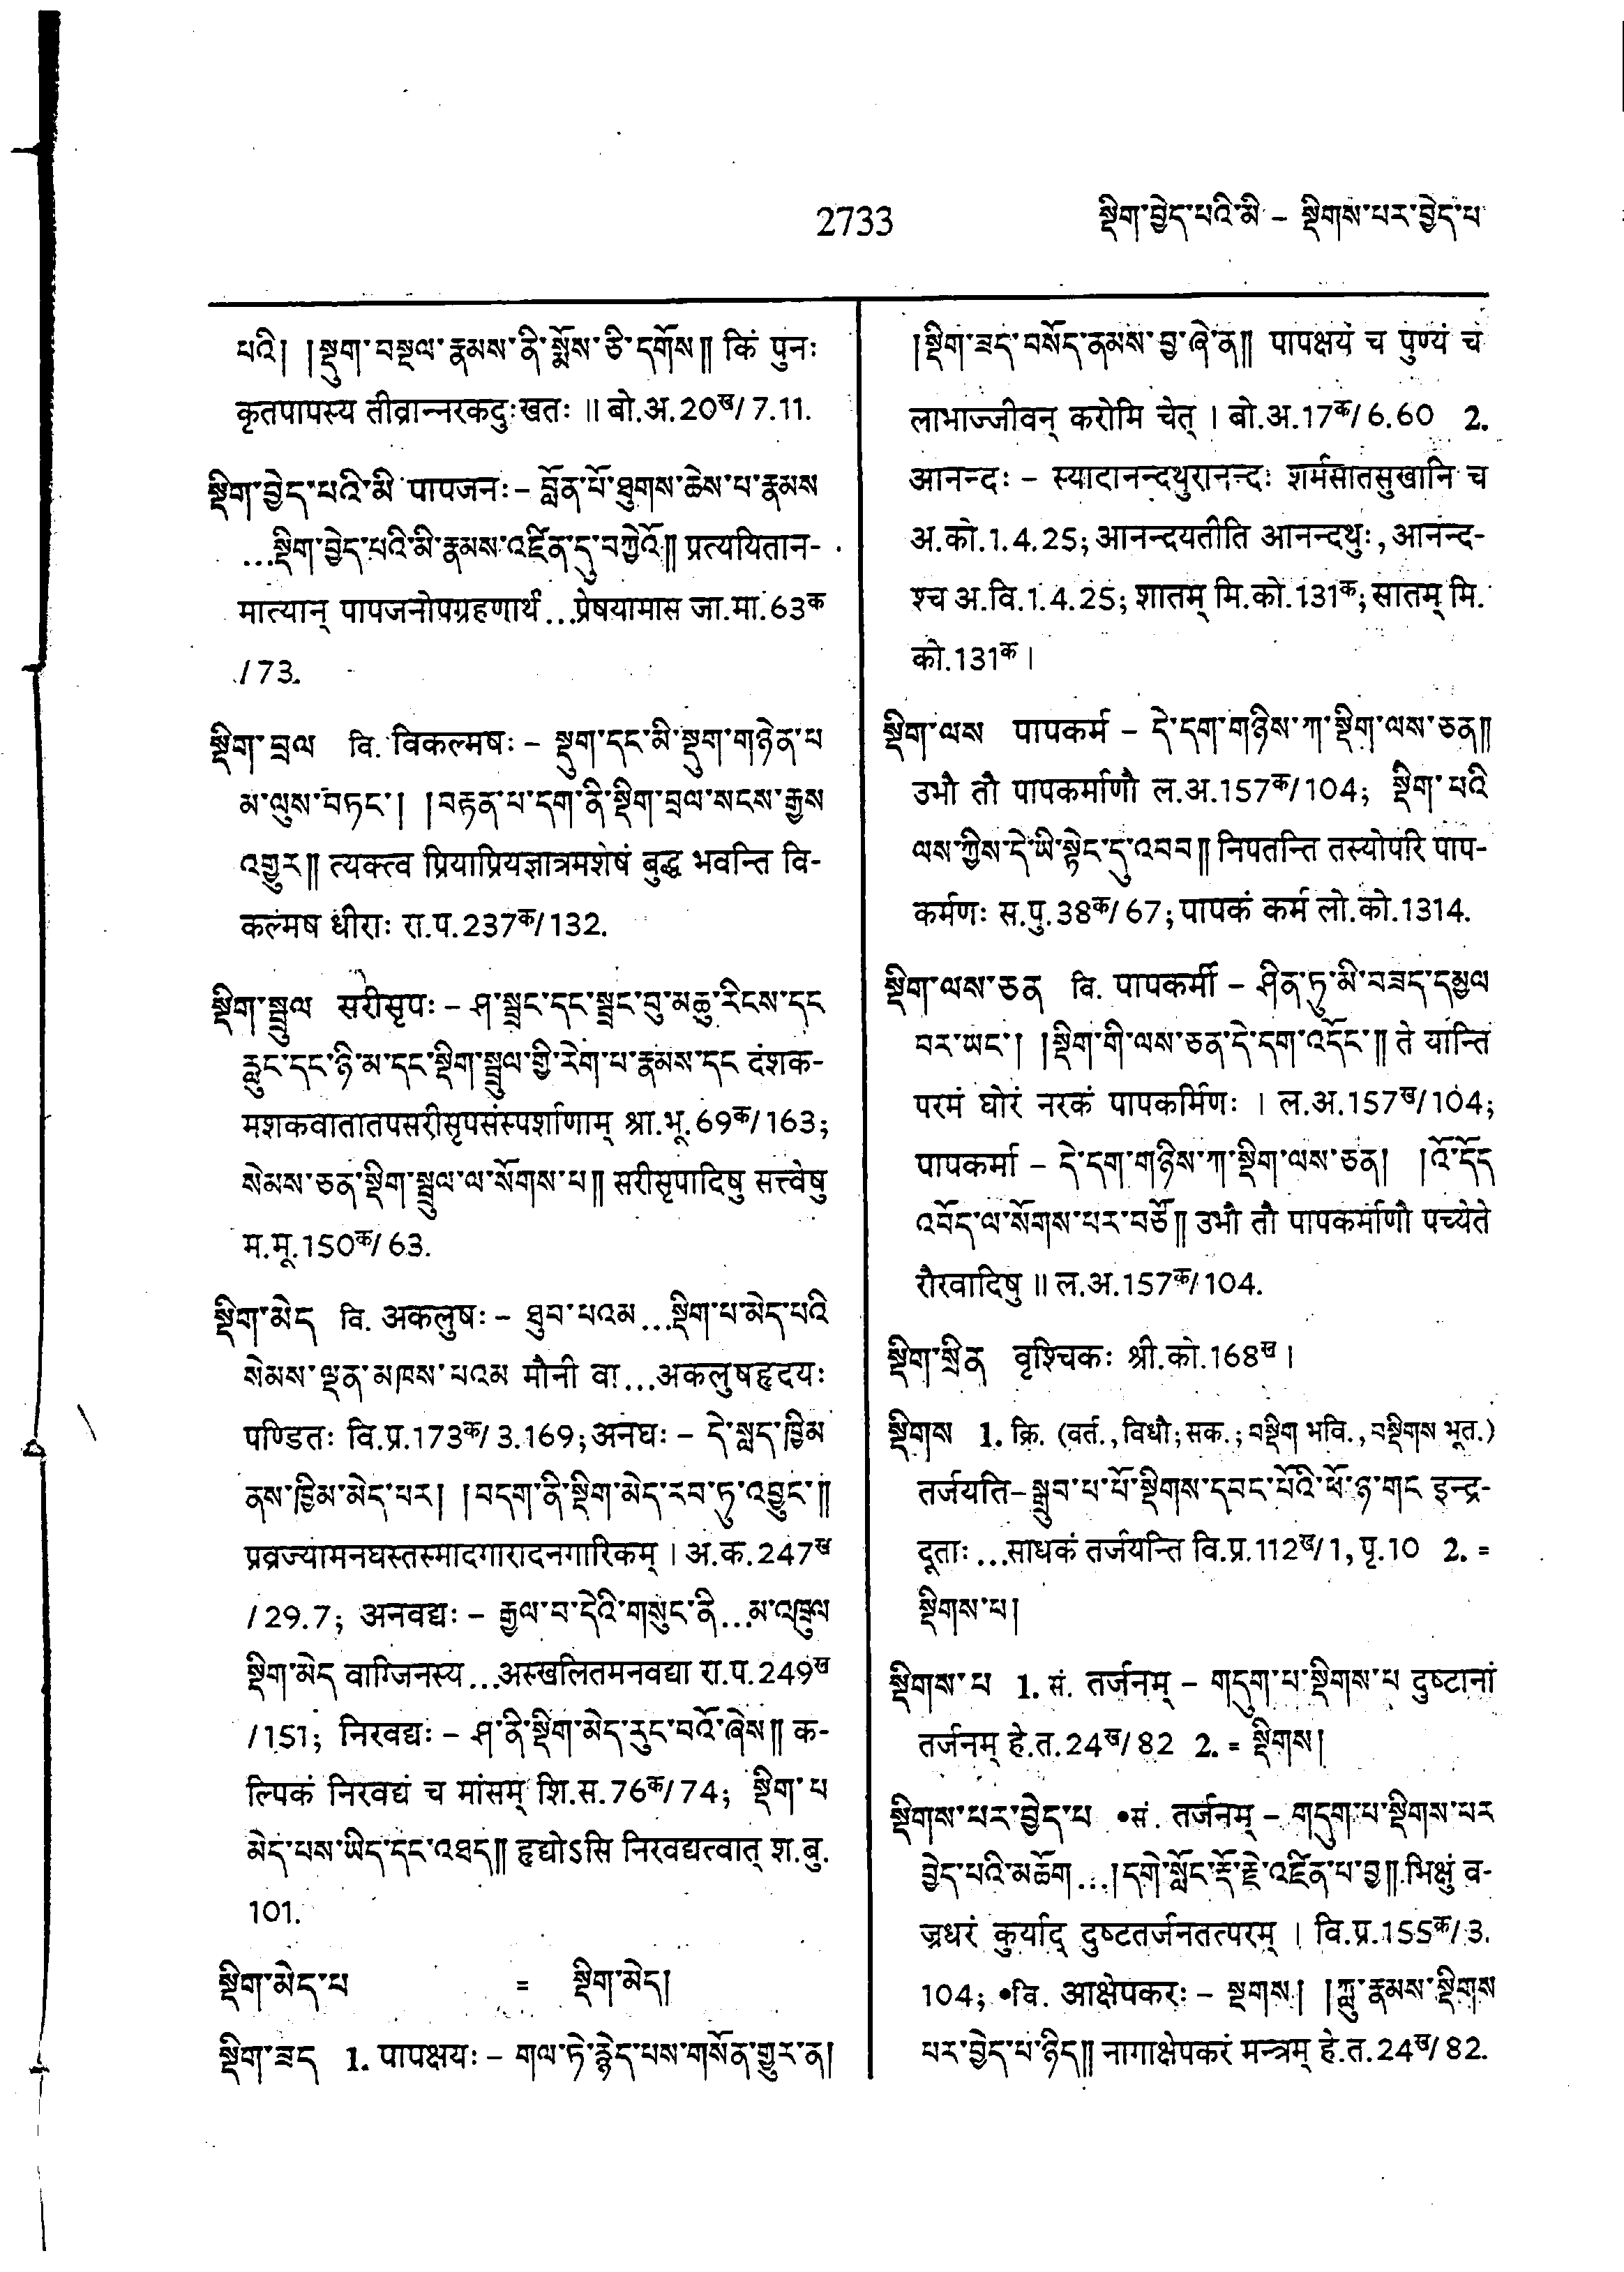 2733
སྡིག་བྱེད་པའི་མི – སྡིགས་པར་བྱེད་པ
པའི། །སྡུག་བསྔལ་རྣམས་ནི་སྨོས་ཅི་དགོས༎ किं पुनः
कृतपापस्य तीव्रान्नरकदुःखतः ॥ बो.अ.20ख/7.11.
སྡིག་བྱེད་པའི་མི पापजनः – བློན་པོ་ཐུགས་ཆེས་པ་རྣམས
...སྡིག་བྱེད་པའི་མི་རྣམས་འཛིན་དུ་བཀྱེའོ༎ प्रत्ययितान-
मात्यान् पापजनोपग्रहणार्थं...प्रेषयामास जा.मा.63क
/73.
སྡིག་བྲལ वि. विकल्मषः – སྡུག་དང་མི་སྡུག་གཉེན་པ
མ་ལུས་བཏང་། །བརྟན་པ་དག་ནི་སྡིག་བྲལ་སངས་རྒྱས
འགྱུར༎ त्यक्त्व प्रियाप्रियज्ञात्रमशेषं बुद्ध भवन्ति वि-
कल्मष धीराः रा.प.237क/132.
སྡིག་སྦྲུལ सरीसृपः – ཤ་སྦྲང་དང་སྦྲང་བུ་མཆུ་རིངས་དང
རླུང་དང་ཉི་མ་དང་སྡིག་སྦྲུལ་གྱི་རེག་པ་རྣམས་དང दंशक-
मशकवातातपसरीसृपसंस्पर्शाणाम् श्रा.भू.69क/163;
སེམས་ཅན་སྡིག་སྦྲུལ་ལ་སོགས་པ༎ सरीसृपादिषु सत्त्वेषु
म.मू.150क/63.
སྡིག་མེད वि. अकलुषः – ཐུབ་པའམ...སྡིག་པ་མེད་པའི
སེམས་ལྡན་མཁས་པའམ मौनी वा...अकलुषहृदयः
पण्डितः वि.प्र.173क/3.169; अनघः – དེ་སླད་ཁྱིམ
ནས་ཁྱིམ་མེད་པར། །བདག་ནི་སྡིག་མེད་རབ་ཏུ་འབྱུང་༎
प्रव्रज्यामनघस्तस्मादगारादनगारिकम् । अ.क.247ख
/29.7; अनवद्यः – རྒྱལ་བ་དེའི་གསུང་ནི...མ་འཁྲུལ
སྡིག་མེད वाग्जिनस्य...अस्खलितमनवद्या रा.प.249ख
/151; निरवद्यः – ཤ་ནི་སྡིག་མེད་རུང་བའོ་ཞེས༎ क-
ल्पिकं निरवद्यं च मांसम् शि.स.76क/74; སྡིག་པ
མེད་པས་ཡིད་དང་འཐད༎ हृद्योऽसि निरवद्यत्वात् श.बु.
101.
སྡིག་མེད་པ = སྡིག་མེད།
སྡིག་ཟད 1. पापक्षयः – གལ་ཏེ་རྙེད་པས་གསོན་གྱུར་ན།
།སྡིག་ཟད་བསོད་ནམས་བྱ་ཞེ་ན༎ पापक्षयं च पुण्यं च
लाभाज्जीवन् करोमि चेत् । बो.अ.17क/6.60 2.
आनन्दः – स्यादानन्दथुरानन्दः शर्मसातसुखानि च
अ.को.1.4.25; आनन्दयतीति आनन्दथुः, आनन्द-
श्च अ.वि.1.4.25; शातम् मि.को.131क; सातम् मि.
को.131क ।
སྡིག་ལས पापकर्म – དེ་དག་གཉིས་ཀ་སྡིག་ལས་ཅན༎
उभौ तौ पापकर्माणौ ल.अ.157क/104; སྡིག་པའི
ལས་ཀྱིས་དེ་ཡི་སྟེང་དུ་འབབ༎ निपतन्ति तस्योपरि पाप-
कर्मणः स.पु.38क/67; पापकं कर्म लो.को.1314.
སྡིག་ལས་ཅན वि. पापकर्मी – ཤིན་ཏུ་མི་བཟད་དམྱལ
བར་ཡང་། །སྡིག་གི་ལས་ཅན་དེ་དག་འདོང་༎ ते यान्ति
परमं घोरं नरकं पापकर्मिणः । ल.अ.157ख/104;
पापकर्मा – དེ་དག་གཉིས་ཀ་སྡིག་ལས་ཅན། །འོ་དོད
འབོད་ལ་སོགས་པར་བཙོ༎ उभौ तौ पापकर्माणौ पच्येते
रौरवादिषु ॥ ल.अ.157क/104.
སྡིག་སྲིན वृश्चिकः श्री.को.168ख ।
སྡིགས 1. क्रि. (वर्त., विधौ; सक.; བསྡིག भवि., བསྡིགས भूत.)
तर्जयति – སྒྲུབ་པ་པོ་སྡིགས་དབང་པོའི་ཕོ་ཉ་གང इन्द्र-
दूताः...साधकं तर्जयन्ति वि.प्र.112ख/1, पृ.10 2. =
སྡིགས་པ།
སྡིགས་པ 1. सं. तर्जनम् – གདུག་པ་སྡིགས་པ दुष्टानां
तर्जनम् हे.त.24ख/82 2. = སྡིགས།
སྡིགས་པར་བྱེད་པ •सं. तर्जनम् – གདུག་པ་སྡིགས་པར
བྱེད་པའི་མཆོག...།དགེ་སློང་རྡོ་རྗེ་འཛིན་པ་བྱ༎ भिक्षुं व-
ज्रधरं कुर्याद् दुष्टतर्जनतत्परम् । वि.प्र.155क/3.
104; •वि. आक्षेपकरः – སྔགས། །ཀླུ་རྣམས་སྡིགས
པར་བྱེད་པ་ཉིད༎ नागाक्षेपकरं मन्त्रम् हे.त.24ख/82.